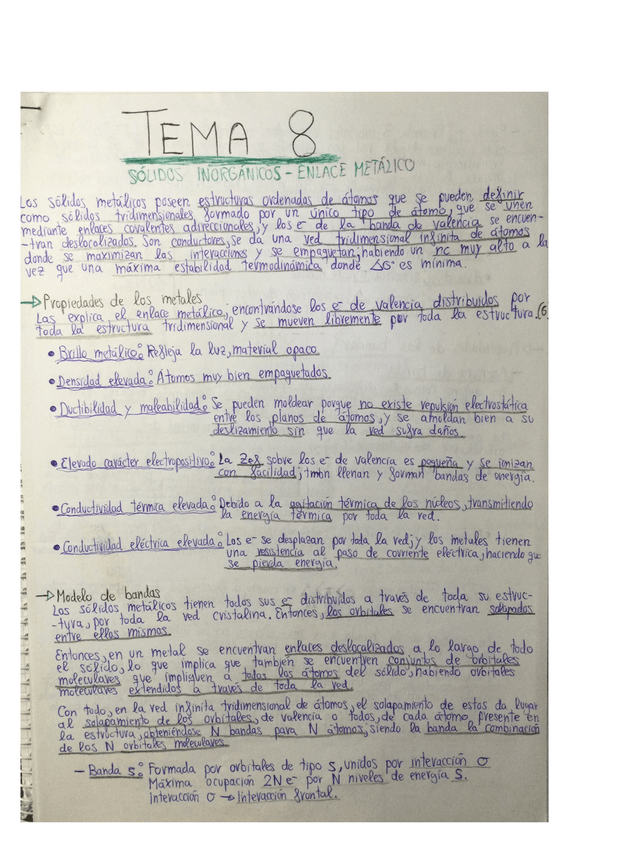 TEMA 8
SÓLIDOS INORGÁNICOS - ENLACE METÁLICO
Los sólidos metálicos poseen estructuras ordenadas de átomos que se pueden definir
como sólidos tridimensionales formado por un único tipo de átomo, que se unen
mediante enlaces covalentes adireccionales, y los e⁻ de la banda de valencia se encuen-
-tran deslocalizados. Son conductores, se da una red tridimensional infinita de átomos
donde se maximizan las interacciones y se empaquetan, habiendo un nc muy alto a la
vez que una máxima estabilidad termodinámica donde ΔG° es mínima.
→ Propiedades de los metales
Las explica el enlace metálico, encontrándose los e⁻ de valencia distribuidos por
toda la estructura tridimensional y se mueven libremente por toda la estructura. (6
• Brillo metálico: Refleja la luz, material opaco.
• Densidad elevada: Átomos muy bien empaquetados.
• Ductibilidad y maleabilidad: Se pueden moldear porque no existe repulsión electrostática
entre los planos de átomos, y se amoldan bien a su
deslizamiento sin que la red sufra daños.
• Elevado carácter electropositivo: La Zef sobre los e⁻ de valencia es pequeña y se ionizan
con facilidad; tmbn llenan y forman bandas de energía.
• Conductividad térmica elevada: Debido a la agitación térmica de los núcleos, transmitiendo
la energía térmica por toda la red.
• Conductividad eléctrica elevada: Los e⁻ se desplazan por toda la red; y los metales tienen
una resistencia al paso de corriente eléctrica, haciendo que
se pierda energía.
→ Modelo de bandas
Los sólidos metálicos tienen todos sus e⁻ distribuidos a través de toda su estruc-
-tura, por toda la red cristalina. Entonces, los orbitales se encuentran solapados
entre ellos mismos.
Entonces, en un metal se encuentran enlaces deslocalizados a lo largo de todo
el sólido, lo que implica que también se encuentren conjuntos de orbitales
moleculares que impliquen a todos los átomos del sólido, habiendo orbitales
moleculares extendidos a través de toda la red.
Con todo, en la red infinita tridimensional de átomos, el solapamiento de estos da lugar
al solapamiento de los orbitales, de valencia o todos, de cada átomo presente en
la estructura, obteniéndose N bandas para N átomos, siendo la banda la combinación
de los N orbitales moleculares.
- Banda s: Formada por orbitales de tipo S, unidos por interacción σ
Máxima ocupación 2N e⁻ por N niveles de energía S.
Interacción σ → Interacción frontal.